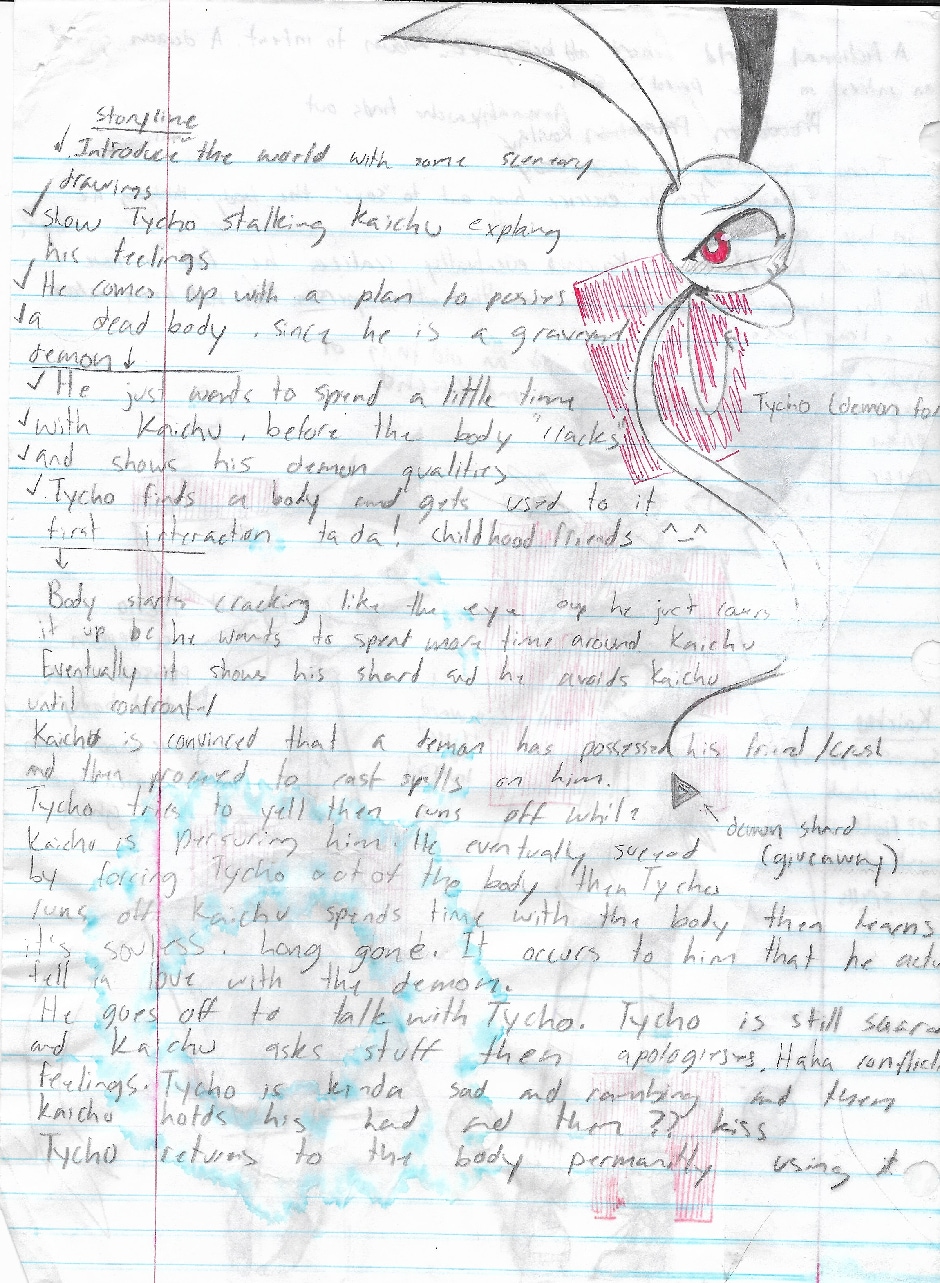 storyline
✓. Introduce the world with some sceneary
drawings
✓ show Tycho stalking Kaichu explang
his feelings
✓ He comes up with a plan to posses
✓ a dead body, since he is a graveyard
demon ↓
✓ He just wents to spend a little time
✓ with Kaichu, before the body "cracks"
✓ and shows his demon qualities
✓. Tycho finds a body and gets used to it
first interaction tada! childhood friends ^_^
↓
Body starts cracking like the eye oup he just covers
it up bc he wants to spent more time around Kaichu
Eventually it shows his shard and he avoids Kaichu
until confront
Kaichu is convinced that a demon has possessed his friend/crush
and then proceed to cast spells on him.
Tycho tries to yell then runs off while
Kaichu is persuring him. He eventually suceed
by forcing Tycho out of the body, then Tycho
runs off Kaichu spends time with the body then learns
it's souless. Long gone. It occurs to him that he actu
fell in love with the demon.
He goes off to talk with Tycho. Tycho is still scared
and Kaichu asks stuff then apologieses. Haha conflict
feelings. Tycho is kinda sad and rambing and them
Kaichu holds his had and them ?? kiss
Tycho returns to the body permantly using it
Tycho (demon for
demon shard
(giveaway)